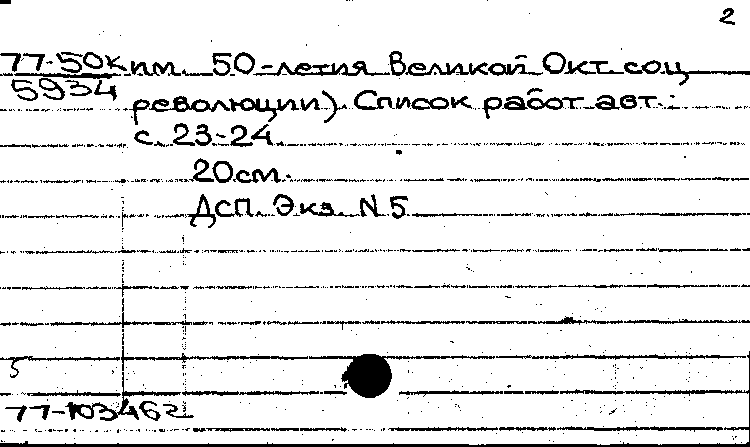 2
77-50к им. 50-летия Великой Окт. соц.
5934 революции). Список работ авт.:
с. 23-24.
20см.
ДСП. Экз. N 5
5
77-103462